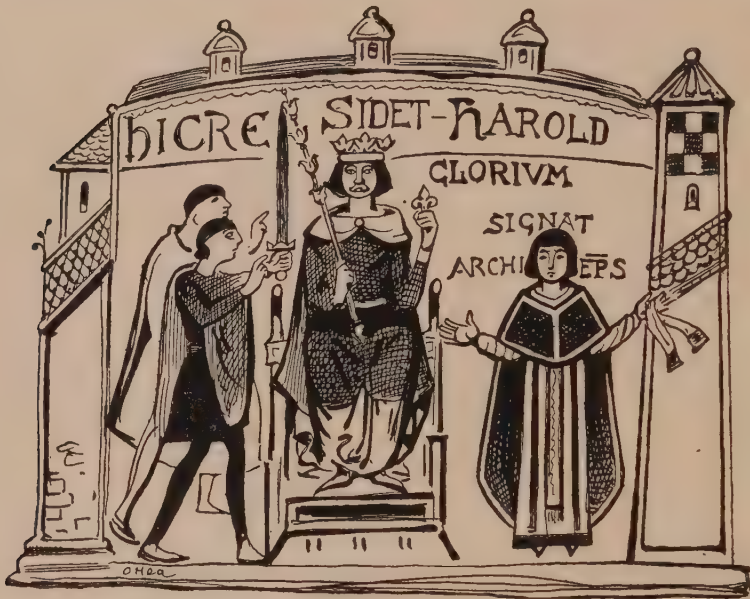 hICRE SIDET-hAROLD
GLORIVM
SIGNAT
ARCHI EPS
OHea